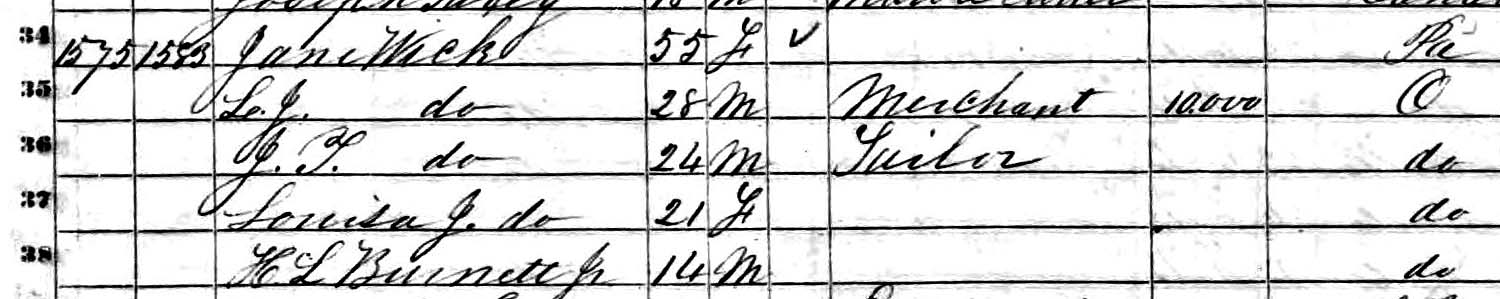 34 1575 1583 Jane Wick 55 F ✓ Pa
35 L. J. do 28 M Merchant 10.000 O
36 J. T. do 24 M Tailor do
37 Louisa J. do 21 F do
38 H L Burnett Jr 14 M do